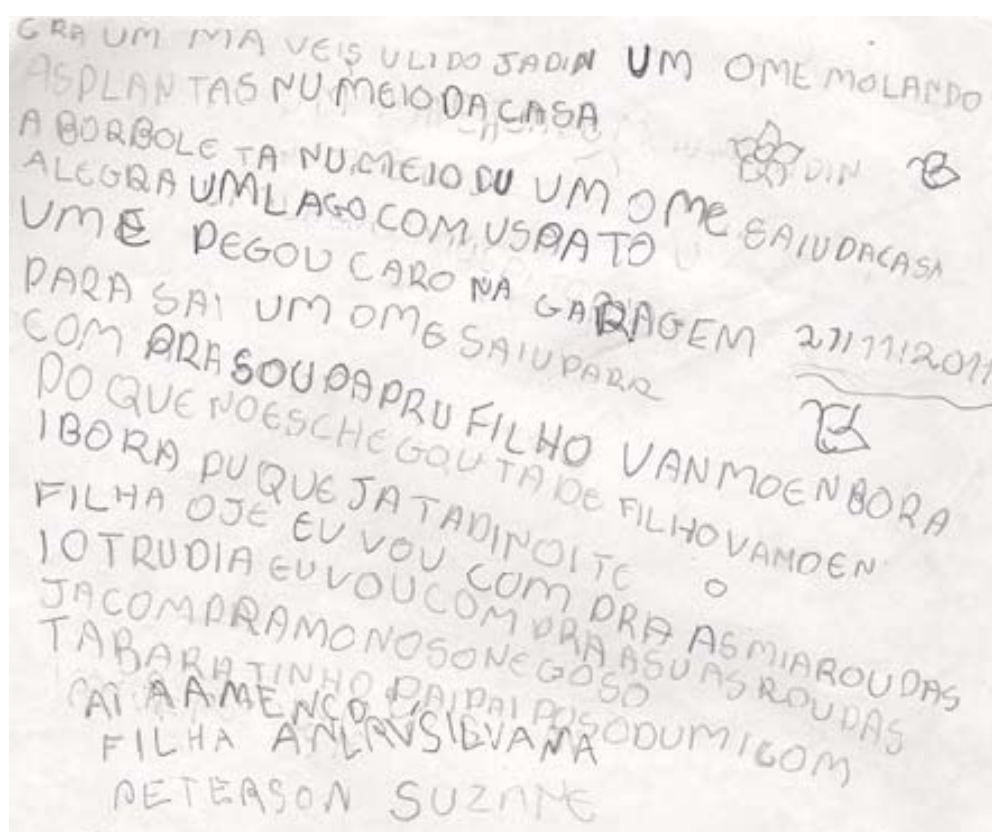 GRA UM MA VEIS ULIDO JADIN UM OME MOLANDO
ASPLANTAS NUMEIO DA CASA
A BORBOLETA NUMEIO DU UM OME SAIU DACASA
DIN
ALEGRA UM LAGO COM USPATO
UM E PEGOU CARO NA GARAGEM 27/11/2011
PARA SAI UM OME SAIU PARA
COM PRA SOUPA PRU FILHO VAN MOENBORA
DO QUE NOES CHEGOU TADE FILHO VAMOEN
IBORA PUQUE JA TADINOITE
FILHA OJE EU VOU COM PRA AS MIAROUPAS
IOTRUDIA EU VOU COMPRA ASUAS ROUPAS
JA COMPRAMO NOSO NEGOSO
TABARATINHO PAIPAI POSO DUMIGOM
FILHA
PETERSON SUZANE